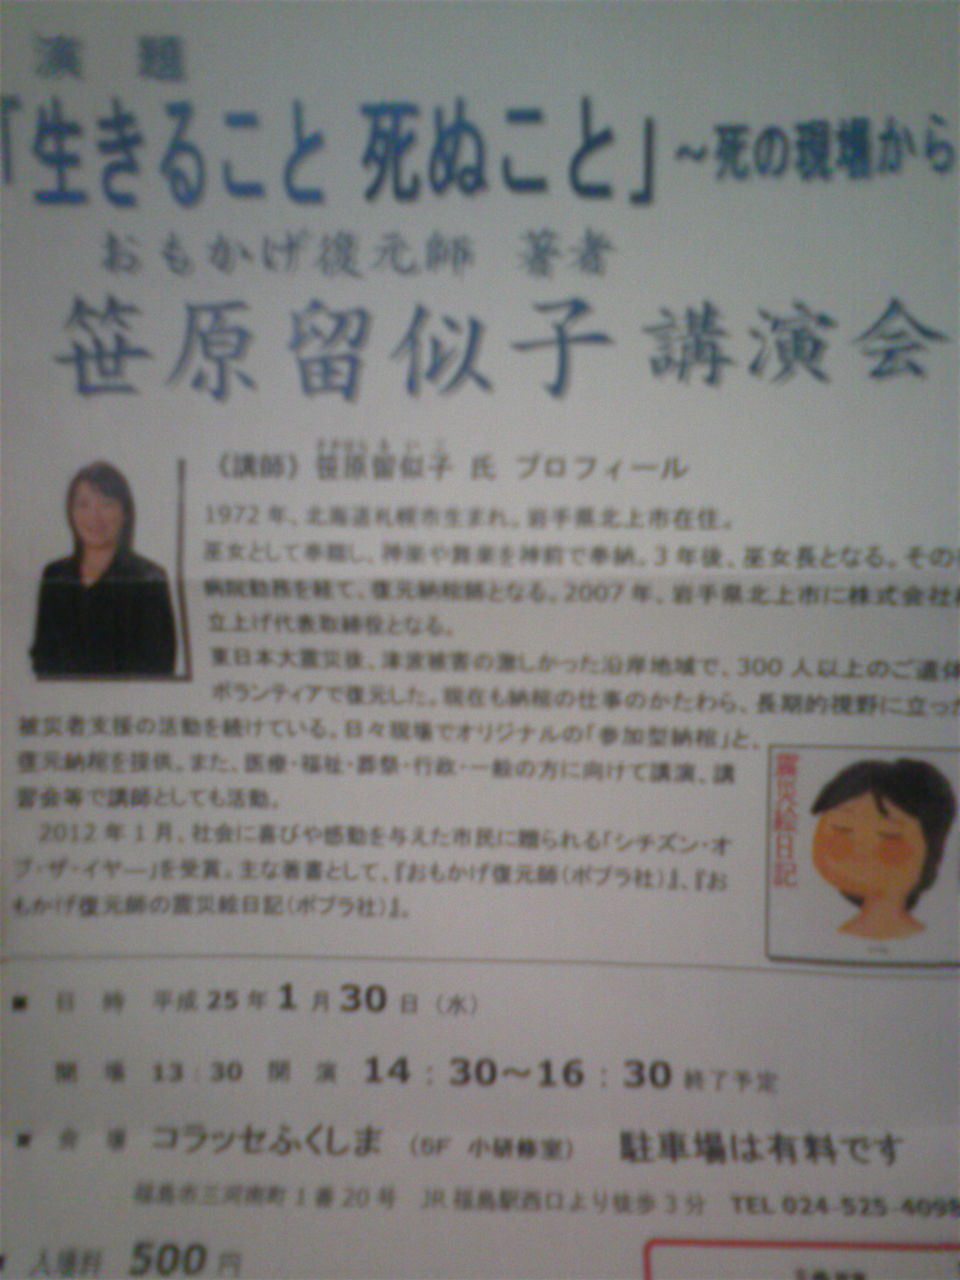 演題
「生きること 死ぬこと」～死の現場から
おもかげ復元師 著者
笹原留似子 講演会
ささはら る い こ
《講師》 笹原留似子 氏 プロフィール
1972年、北海道札幌市生まれ。岩手県北上市在住。
巫女として奉職し、神楽や舞楽を神前で奉納。3年後、巫女長となる。その
病院勤務を経て、復元納棺師となる。2007年、岩手県北上市に株式会社
立上げ代表取締役となる。
東日本大震災後、津波被害の激しかった沿岸地域で、300人以上のご遺体
ボランティアで復元した。現在も納棺の仕事のかたわら、長期的視野に立った
被災者支援の活動を続けている。日々現場でオリジナルの「参加型納棺」と、
復元納棺を提供。また、医療・福祉・葬祭・行政・一般の方に向けて講演、講
習会等で講師としても活動。
2012年1月、社会に喜びや感動を与えた市民に贈られる「シチズン・オ
ブ・ザ・イヤー」を受賞。主な著書として、『おもかげ復元師（ポプラ社）』、『お
もかげ復元師の震災絵日記（ポプラ社）』。
震災絵日記
■ 日 時 平成25年1月30日（水）
開 場 13：30 開 演 14：30～16：30 終了予定
■ 会 場 コラッセふくしま （5F 小研修室） 駐車場は有料です
福島市三河南町1番20号 JR福島駅西口より徒歩3分 TEL 024-525-409
■ 入場料 500円